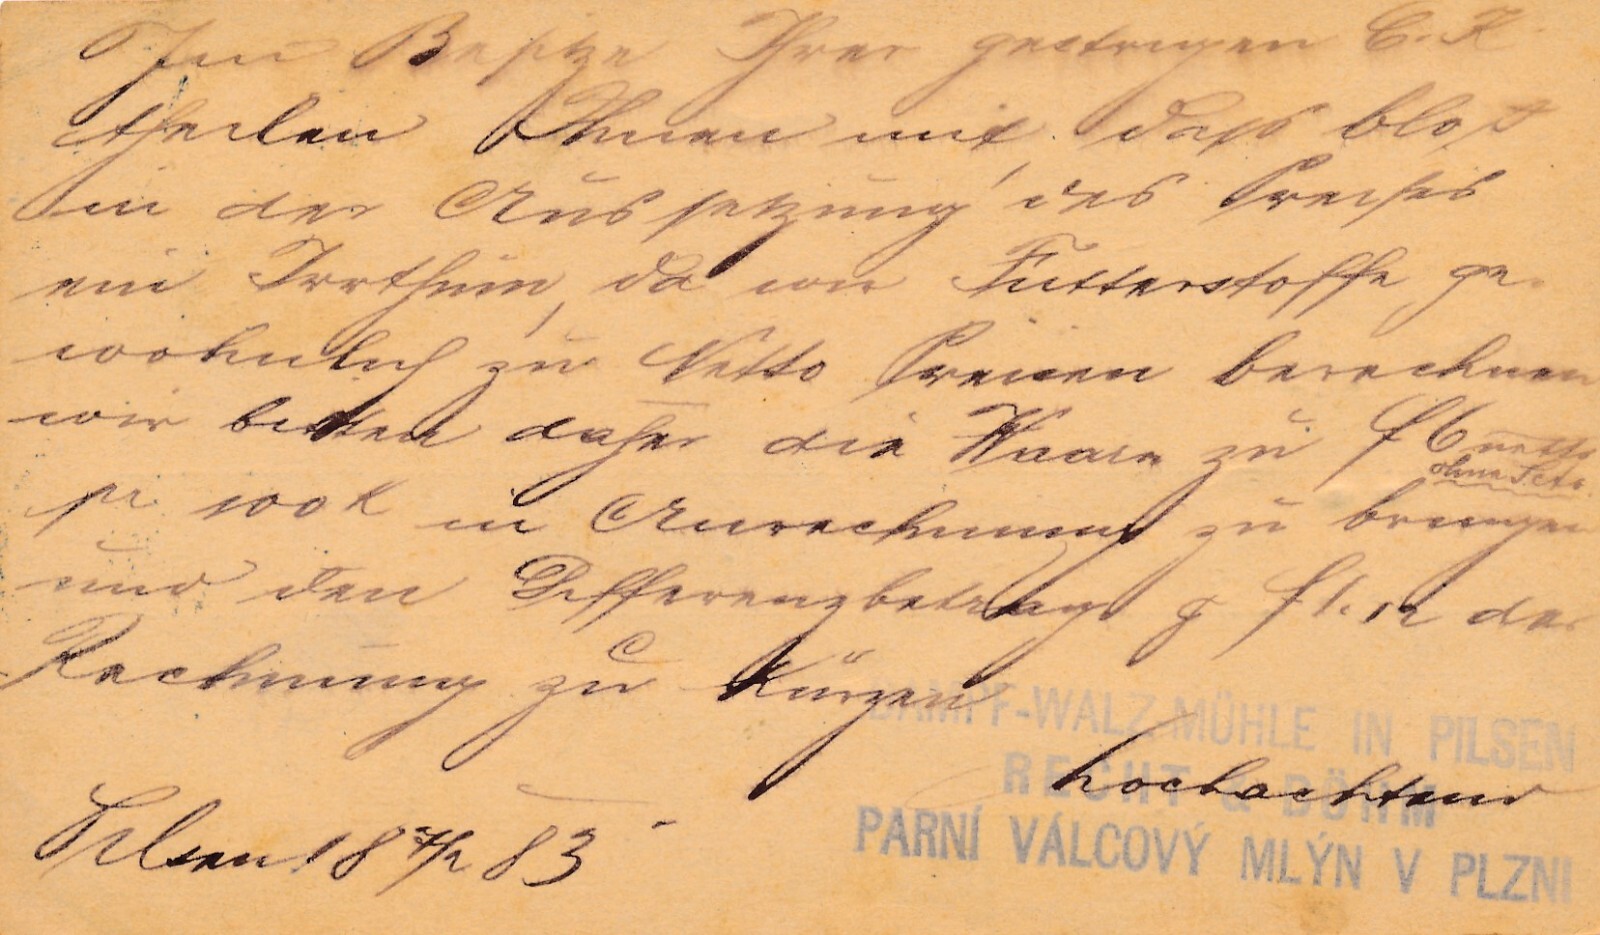 Im Besitze Ihrer gestrigen C. K.
theilen Ihnen mit, dass blos
in der Aussetzung des Preises
ein Irrthum, da wir Futterstoffe ge-
wöhnlich zu Netto Preisen berechnen
wir bitten daher die Waare zu f 6 netto
ohne Scto.
pr 100 K in Anrechnung zu bringen
und den Differenzbetrag f 1.12 der
Rechnung zu kürzen
hochachtend
Pilsen 18 4/2 83
DAMPF-WALZ MÜHLE IN PILSEN
RECHT & BÖHM
PARNÍ VÁLCOVÝ MLÝN V PLZNI